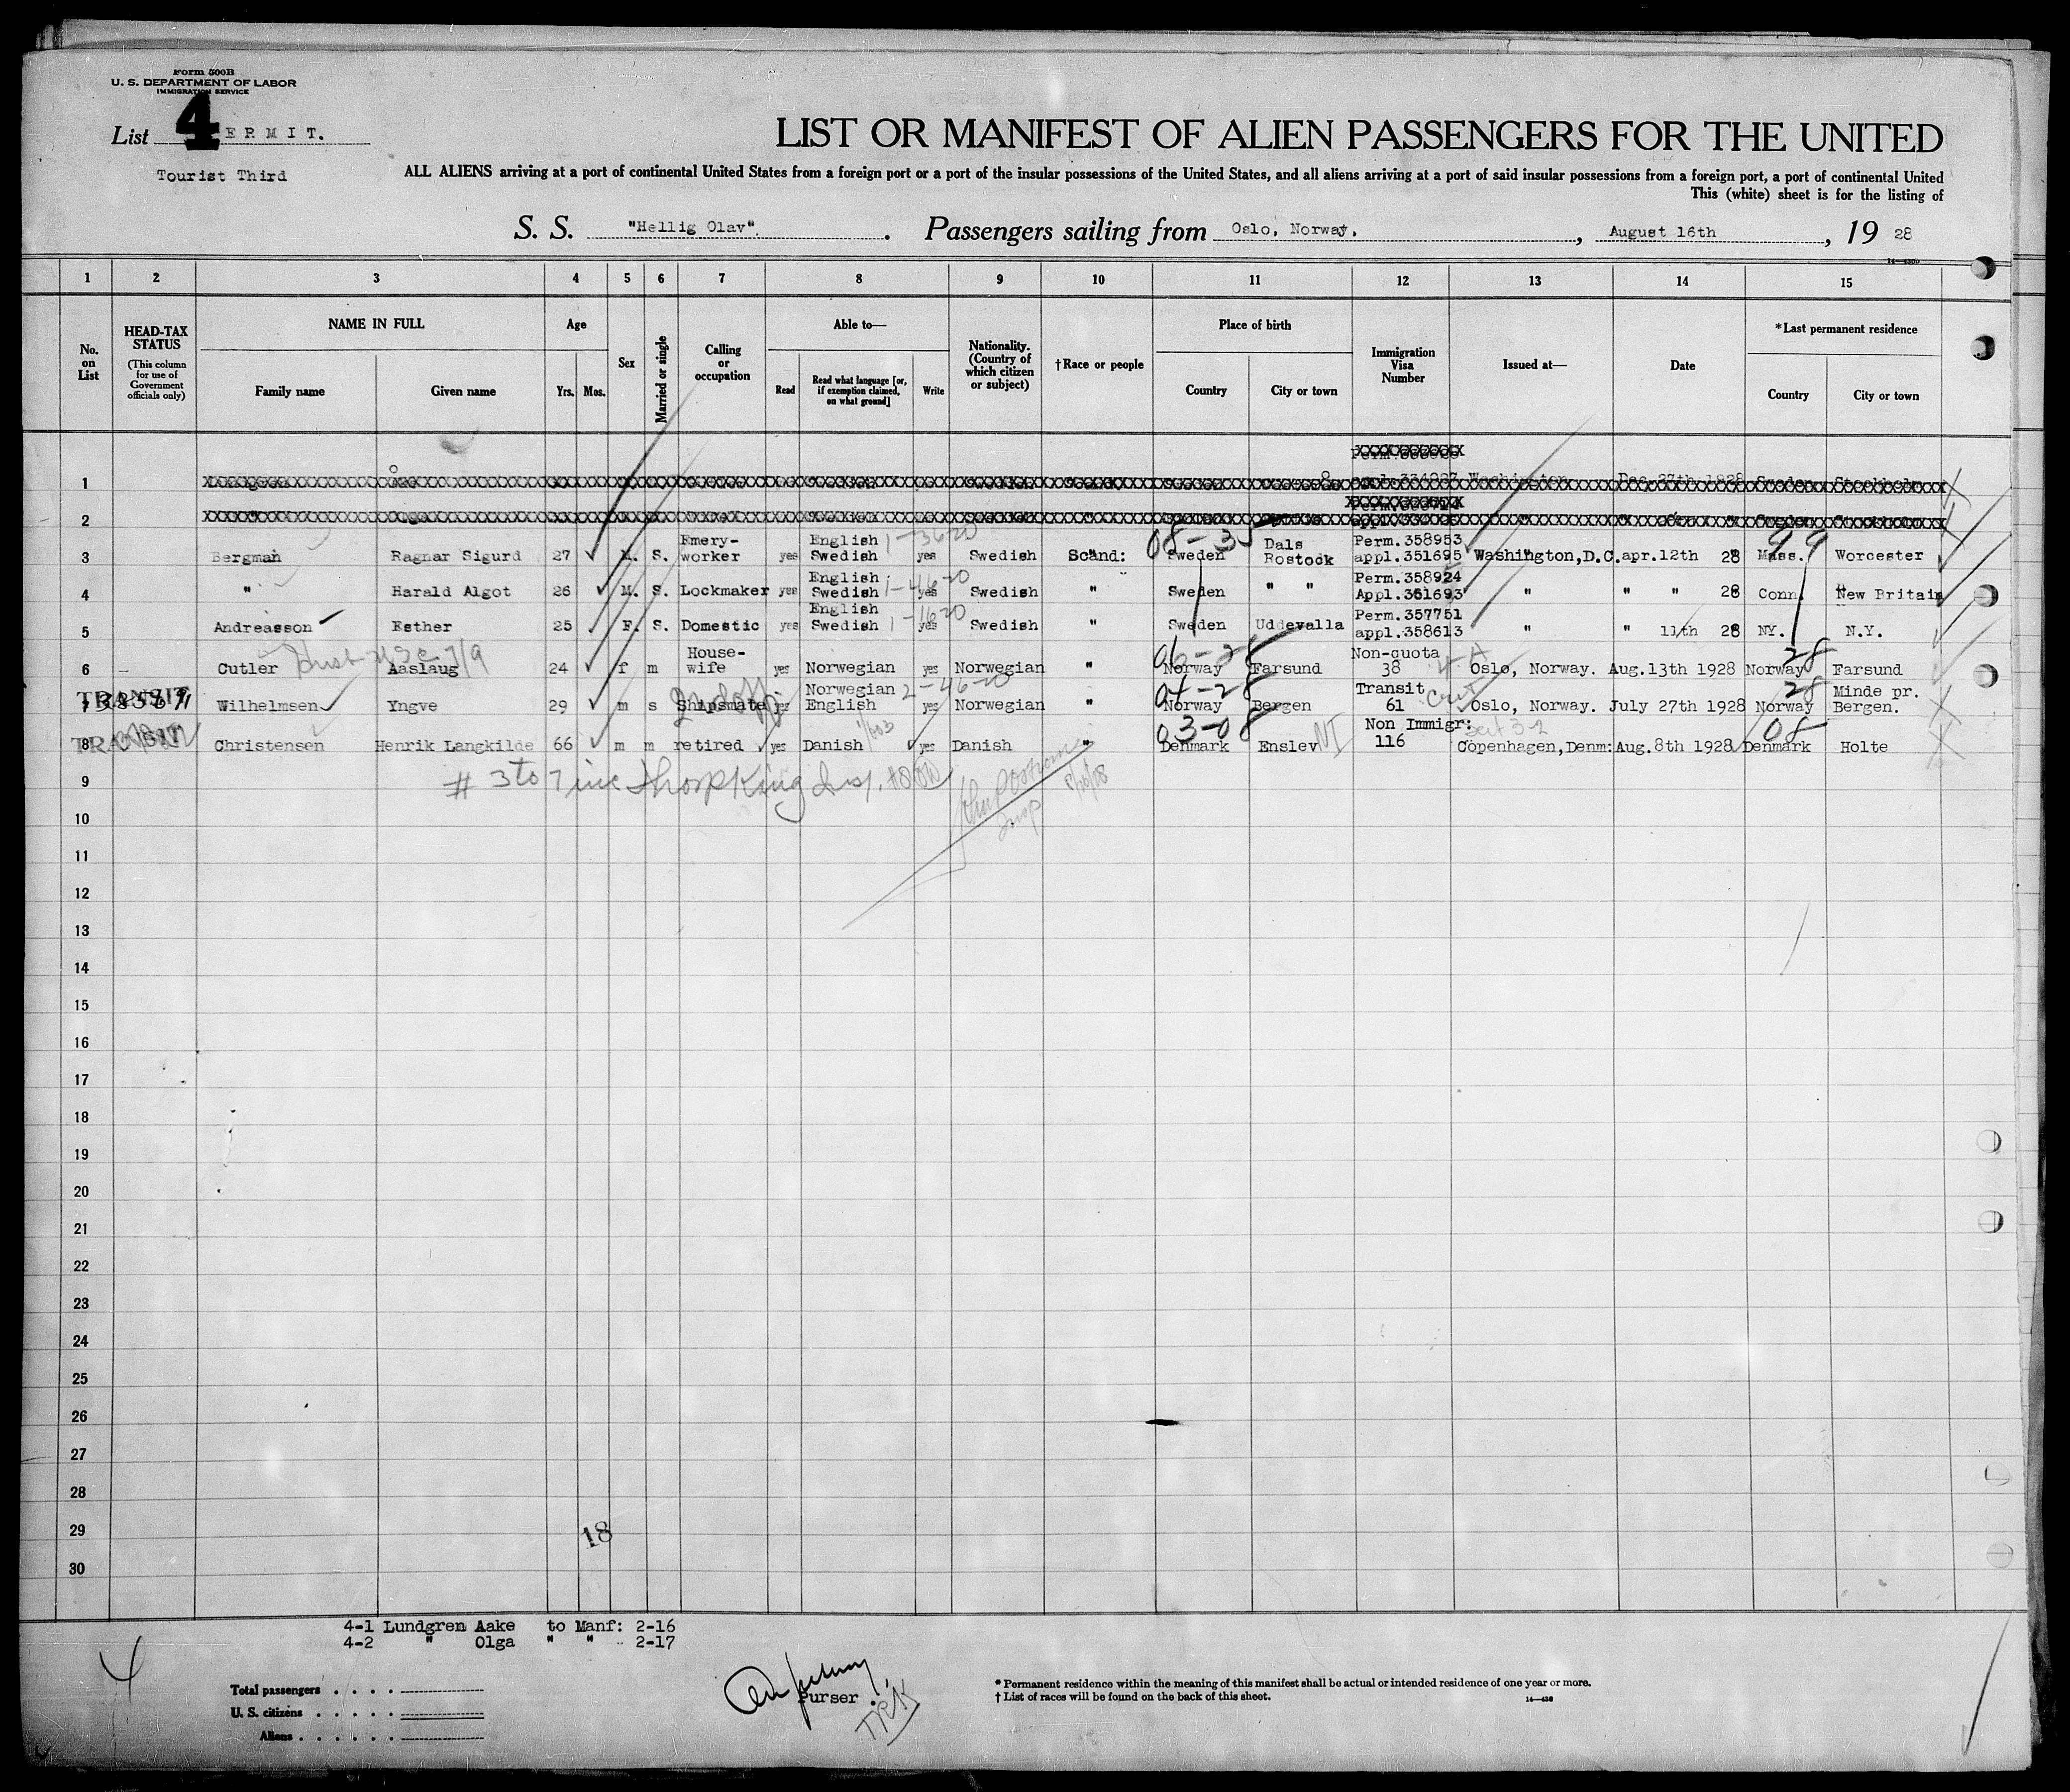 Form 500B
U. S. DEPARTMENT OF LABOR
IMMIGRATION SERVICE
List 4 ERMIT.
Tourist Third
LIST OR MANIFEST OF ALIEN PASSENGERS FOR THE UNITED
ALL ALIENS arriving at a port of continental United States from a foreign port or a port of the insular possessions of the United States, and all aliens arriving at a port of said insular possessions from a foreign port, a port of continental United
This (white) sheet is for the listing of
S. S. "Hellig Olav". Passengers sailing from Oslo, Norway. , August 16th , 19 28
1 2 3 4 5 6 7 8 9 10 11 12 13 14 15
No. on List
HEAD-TAX STATUS
(This column for use of Government officials only)
NAME IN FULL
Family name Given name
Age
Yrs. Mos.
Sex
Married or single
Calling or occupation
Able to—
Read Read what language [or, if exemption claimed, on what ground] Write
Nationality. (Country of which citizen or subject)
†Race or people
Place of birth
Country City or town
Immigration Visa Number
Issued at—
Date
*Last permanent residence
Country City or town
1 Washington Dec. 27th 1928 Sweden Stockholm
2
3 Bergman Ragnar Sigurd 27 M. S. Emery-worker yes English Swedish 1-3620 yes Swedish Scand: 08-35 Sweden Dals Rostock Perm.358953 appl.351695 Washington,D.C. apr.12th 28 99 Mass. Worcester
4 " Harald Algot 26 M. S. Lockmaker yes English Swedish 1-4620 yes Swedish " Sweden " " Perm.358924 Appl.351693 " " " 28 Conn. New Britain
5 Andreasson Esther 25 F. S. Domestic yes English Swedish 1-1620 yes Swedish " Sweden Uddevalla Perm.357751 appl.358613 " " 11th 28 NY. N.Y.
6 Cutler Aaslaug 24 f m House-wife yes Norwegian yes Norwegian " 06-28 Norway Farsund Non-quota 38 4-A Oslo, Norway. Aug.13th 1928 28 Norway Farsund
TRANSIT
Wilhelmsen Yngve 29 m s Shipsmate yes Norwegian English 2-4620 yes Norwegian " 04-28 Norway Bergen Transit 61 Oslo, Norway. July 27th 1928 28 Norway Minde pr. Bergen.
TRANSIT
8 Christensen Henrik Langkilde 66 m m retired yes Danish yes Danish " 03-08 Denmark Enslev NI Non Immigr: 116 Sect 3-2 Copenhagen,Denm: Aug.8th 1928 08 Denmark Holte
# 3 to 7 inc
9
10
11
12
13
14
15
16
17
18
19
20
21
22
23
24
25
26
27
28
29
18
30
4-1 Lundgren Aake to Manf: 2-16
4-2 " Olga " " 2-17
4
Total passengers . . . .
U. S. citizens . . . . .
Aliens . . . . . .
Purser .
* Permanent residence within the meaning of this manifest shall be actual or intended residence of one year or more.
† List of races will be found on the back of this sheet.
14—430